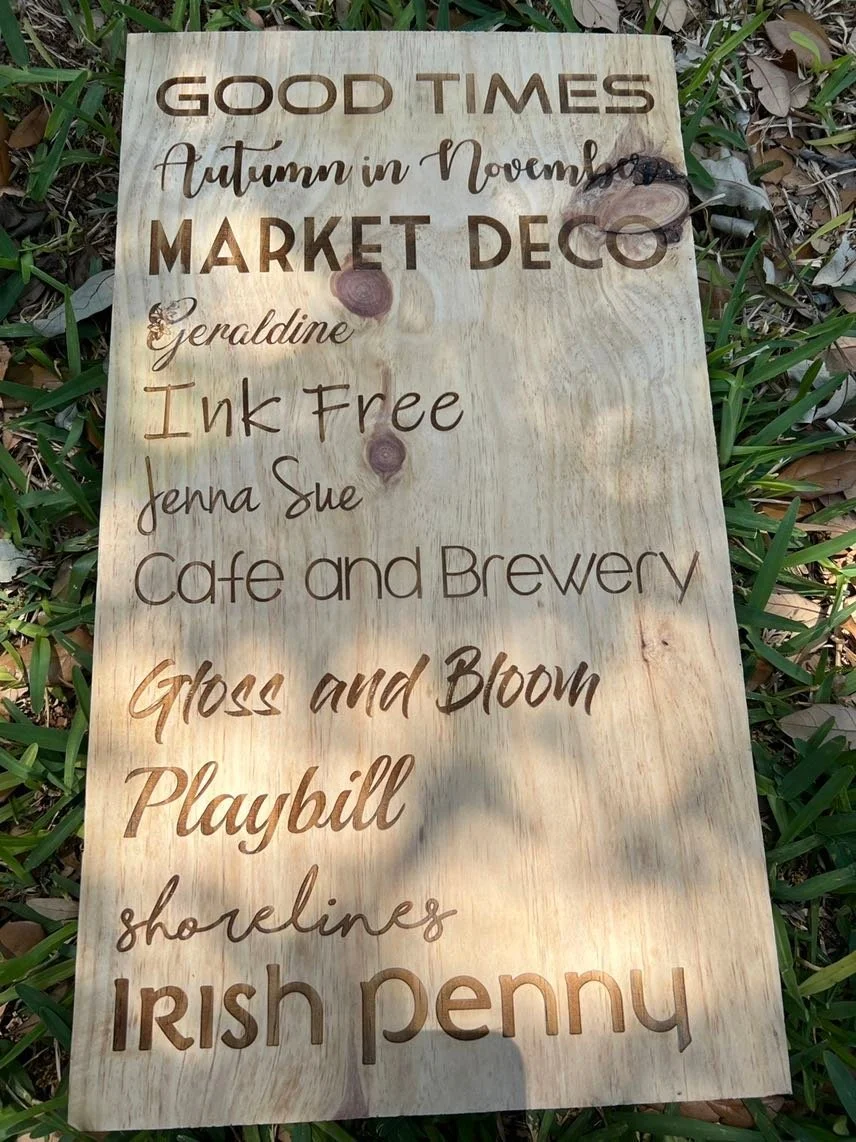 GOOD TIMES
Autumn in November
MARKET DECO
Geraldine
Ink Free
Jenna Sue
Cafe and Brewery
Gloss and Bloom
Playbill
shorelines
Irish Penny